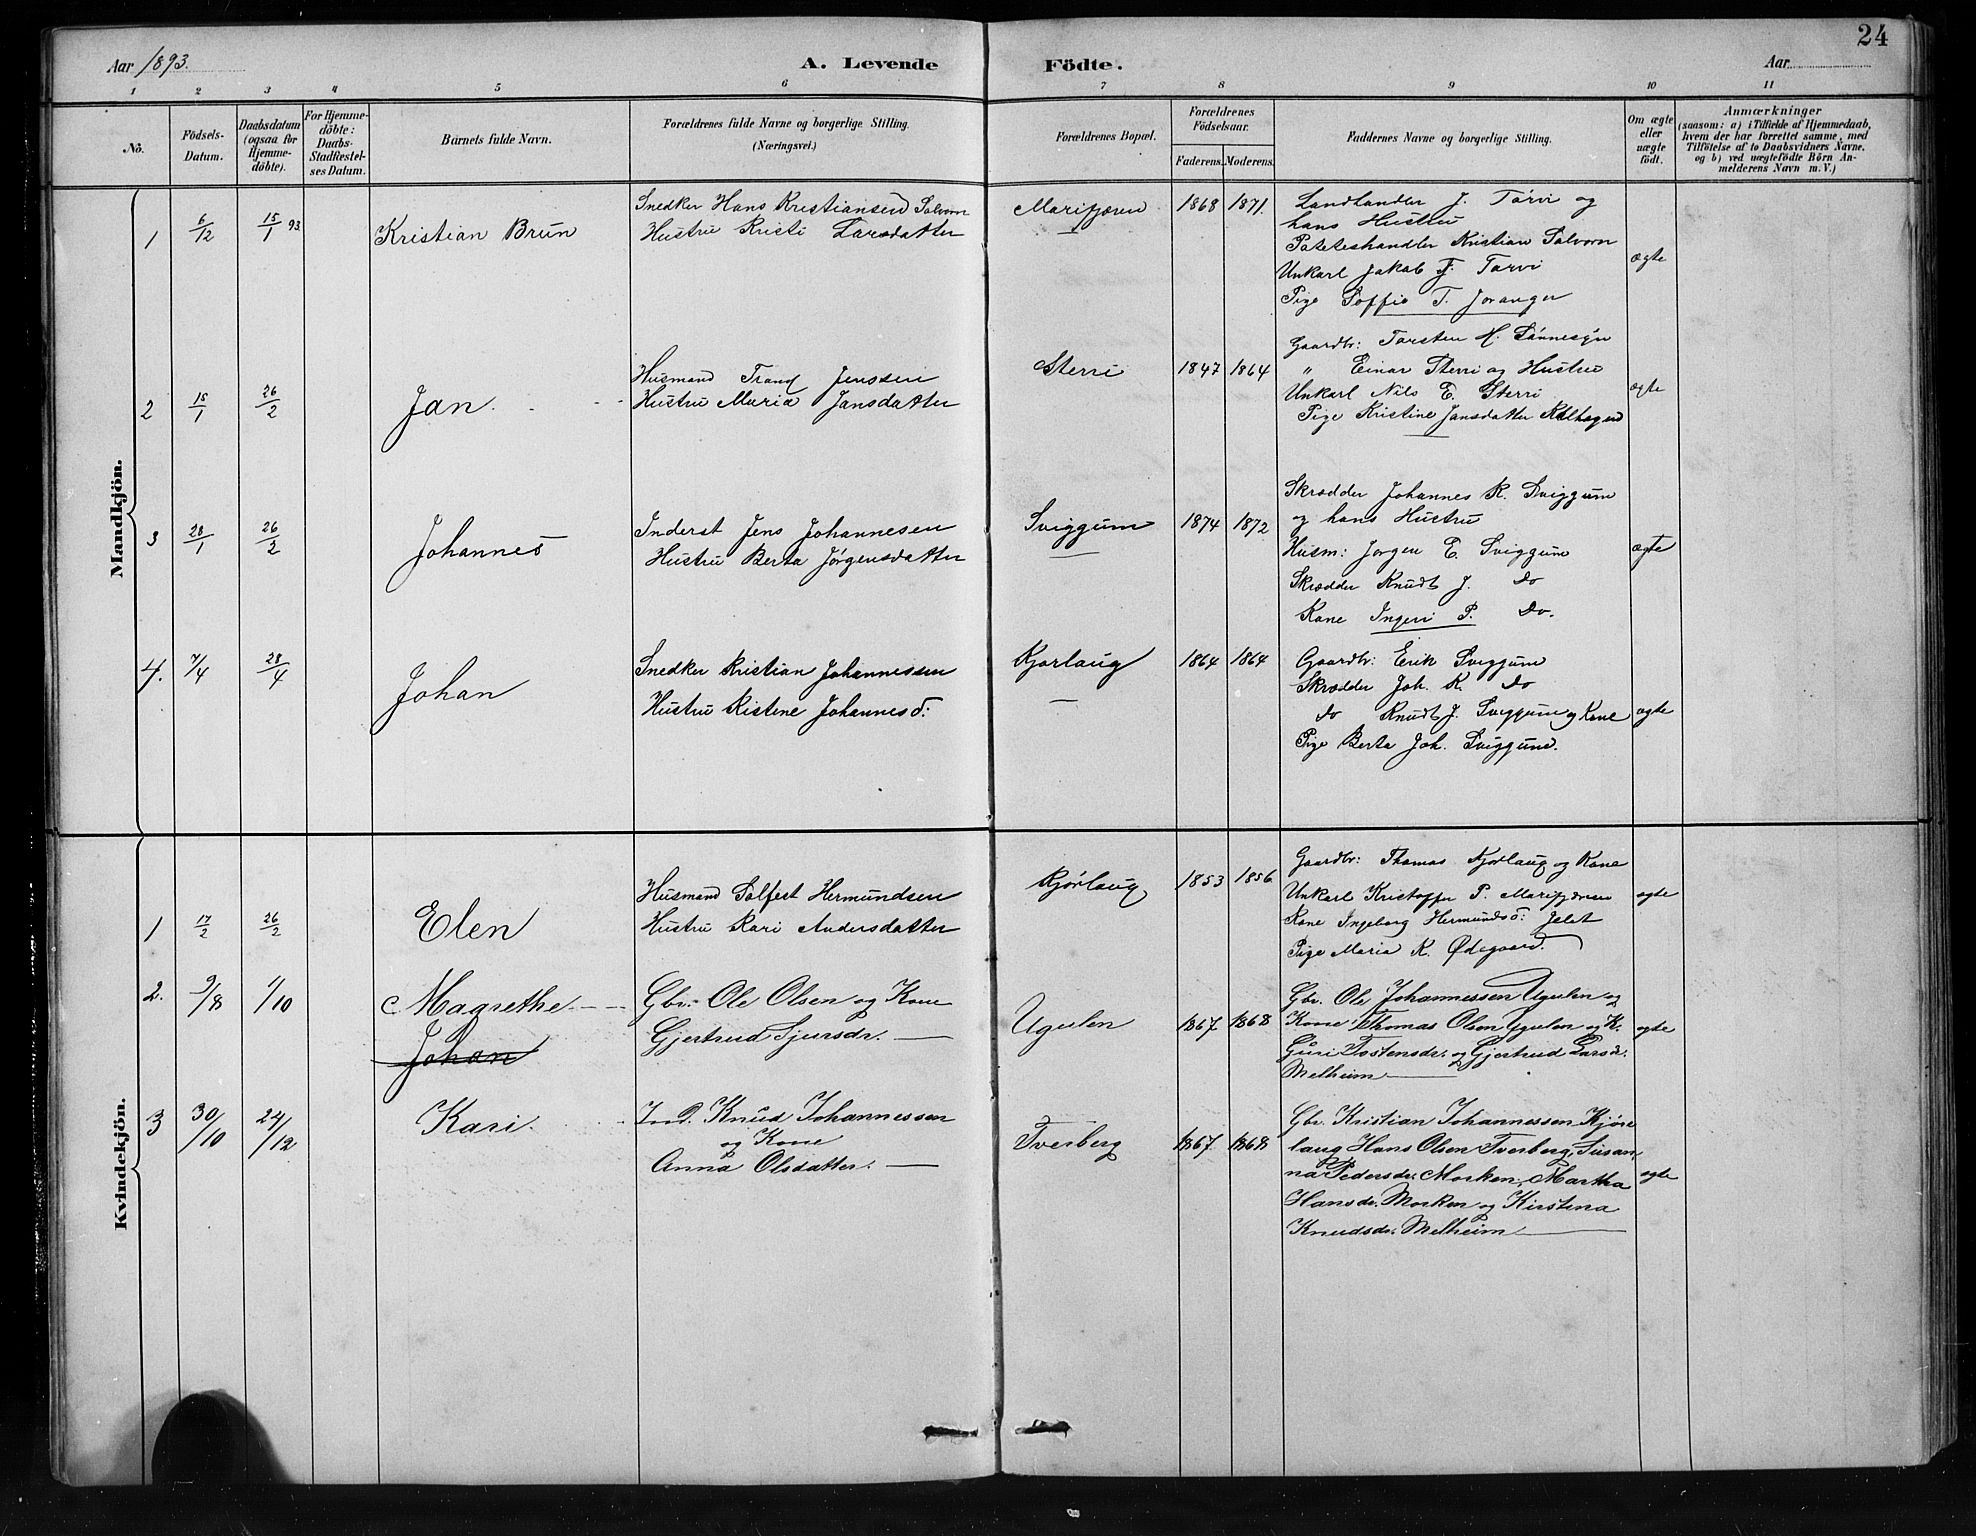 24
Aar 1893.
A. Levende Födte.
Aar
1 2 3 4 5 6 7 8 9 10 11
Nö.
Födsels-
Datum.
Daabsdatum
(ogsaa for
Hjemme-
döbte).
For Hjemme-
döbte:
Daabs-
Stadfæstel-
ses Datum.
Barnets fulde Navn.
Forældrenes fulde Navne og borgerlige Stilling.
(Næringsvei.)
Forældrenes Bopæl.
Forældrenes
Födselsaar.
Faderens. Moderens.
Faddernes Navne og borgerlige Stilling.
Om ægte
eller
uægte
födt.
Anmærkninger
(saasom: a) i Tilfælde af Hjemmedaab,
hvem der har forrettet samme, med
Tilföielse af to Daabsvidners Navne,
og b) ved uægtefödte Börn An-
melderens Navn m. V.)
Mandkjön.
1 6/12 15/1 93 Kristian Brun
Snedker Hans Kristiansen Salvorn
Hustru Kristi Larsdatter
Marifjæren 1868 1871.
Landhandler J. Tørvi og
hans Hustru
Kristian Salvorn
Unkarl Jakob J. Tørvi
Pige Soffie T. Joranger
ægte
2 15/1 26/2 Jan.
Husmand Trond Jenssen
Hustru Maria Jansdatter
Sterri 1847 1864
Gaardbr: Torsten H. Sønnesyn
" Einar Sterri og Hustru
Unkarl Nils E. Sterri
Pige Kristine Jansdatter
ægte
3 28/1 26/2 Johannes
Inderst Jens Johannesen
Hustru Berta Jørgensdatter
Sviggum 1874 1872
Skrædder Johannes K. Sviggum
og hans Hustru
Husm: Jørgen E. Sviggum
Skrædder Knudt J. Do
Kone Ingeri P. Do.
ægte
4. 7/4 28/4 Johan
Snedker Kristian Johannessen
Hustru Kistene Johannesd:
Kjørlaug 1864 1864
Gaardbr: Erik Sviggum
Skrædder Joh. K. Do
Do Knudt J. Sviggum og Kone
Pige Berta Joh. Sviggum.
ægte
Kvindekjön.
1 17/2 26/2 Elen
Husmand Solfest Hermundsen
Hustru Kari Andersdatter
Kjørlaug 1853 1856
Gaardbr: Thomas Kjørlaug og Kone
Unkarl Kristoffer P. Marifjæren
Kone Ingeborg Hermundsd:
Pige Maria K. Ødegaard.
ægte
2. 9/8 1/10 Magrethe
Johan
Gbr. Ole Olsen og Kone
Gjertrud Sjursdr.
Ugulen 1867. 1868
Gbr. Ole Johannessen Ugulen og
Kone. Thomas Olsen Ugulen og K.
Guri Tostensdr. og Gjertrud Larsdr.
Melheim
ægte
3 30/10 24/12 Kari.
Ind. Knud Johannessen
og Kone
Anna Olsdatter.
Tverberg 1867. 1868
Gbr. Kristian Johannessen Kjør-
laug Hans Olsen Tverberg, Susan,
na Pedersdr. Morken, Martha
Hansdr. Morken og Kirstena
Knudsdr. Melheim
ægte